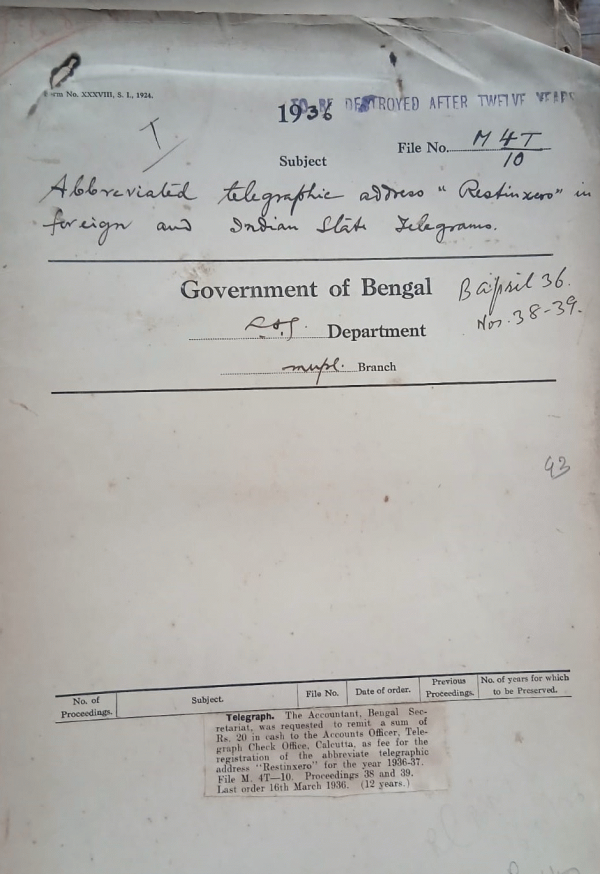 Form No. XXXVIII, S. I., 1924.
TO BE DESTROYED AFTER TWELVE YEARS
1936
T
File No. M 4T/10
Subject
Abbreviated telegraphic address "Restinxero" in
foreign and Indian State Telegrams.
Government of Bengal
B April 36.
Nos. 38-39.
Department
Branch
93
No. of Proceedings.
Subject.
File No.
Date of order.
Previous Proceedings.
No. of years for which to be Preserved.
Telegraph. The Accountant, Bengal Sec-
retariat, was requested to remit a sum of
Rs. 20 in cash to the Accounts Officer, Tele-
graph Check Office, Calcutta, as fee for the
registration of the abbreviate telegraphic
address "Restinxero" for the year 1936-37.
File M. 4T—10. Proceedings 38 and 39.
Last order 16th March 1936. (12 years.)